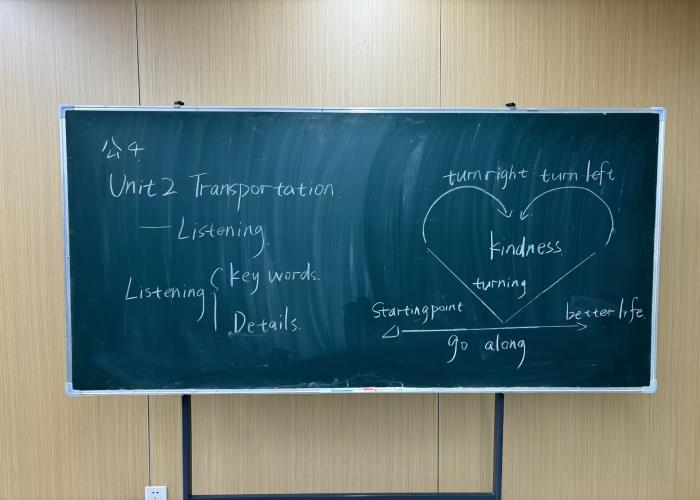 公4
Unit 2 Transportation
— Listening
Listening { key words.
Details.
turn right turn left
kindness
turning
Starting point
better life.
go along